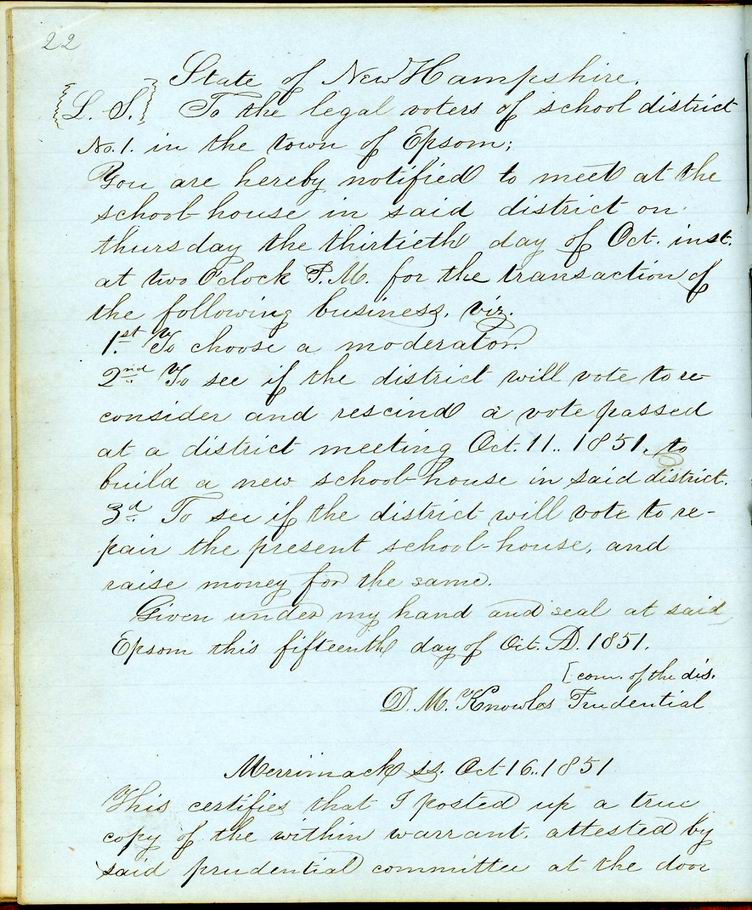 22
State of New Hampshire.
{L. S.} To the legal voters of school district
No. 1. in the town of Epsom;
You are hereby notified to meet at the
school-house in said district on
thursday the thirtieth day of Oct. inst.
at two O'clock P.M. for the transaction of
the following business, viz.
1st. To choose a moderator.
2nd. To see if the district will vote to re-
consider and rescind a vote passed
at a district meeting Oct. 11.. 1851, to
build a new school-house in said district.
3d. To see if the district will vote to re-
pair the present school-house, and
raise money for the same.
Given under my hand and seal at said
Epsom this fifteenth day of Oct. A.D. 1851.
[com. of the dis.
D. M. Knowles Prudential
Merrimack ss. Oct 16.. 1851
This certifies that I posted up a true
copy of the within warrant, attested by
said prudential committee at the door